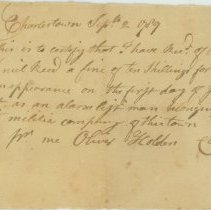 Charlestown Sept. 2 1789
his is to certify that I have Recd. of
niel Reed a fine of ten Shillings for
appearance on the first day of
as an alarm list man
melitia company of this town
pr me Oliver Holden C